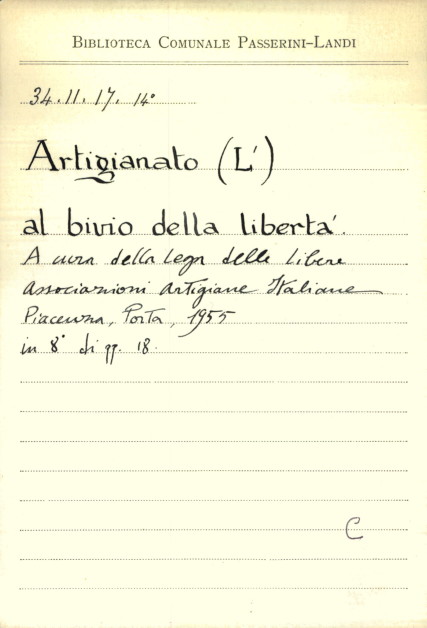 BIBLIOTECA COMUNALE PASSERINI-LANDI
34.II.17. 14°
Artigianato (L')
al bivio della libertà.
A cura della Lega delle Libere
Associazioni Artigiane Italiane
Piacenza, Porta, 1955
in 8° di pp. 18.
C